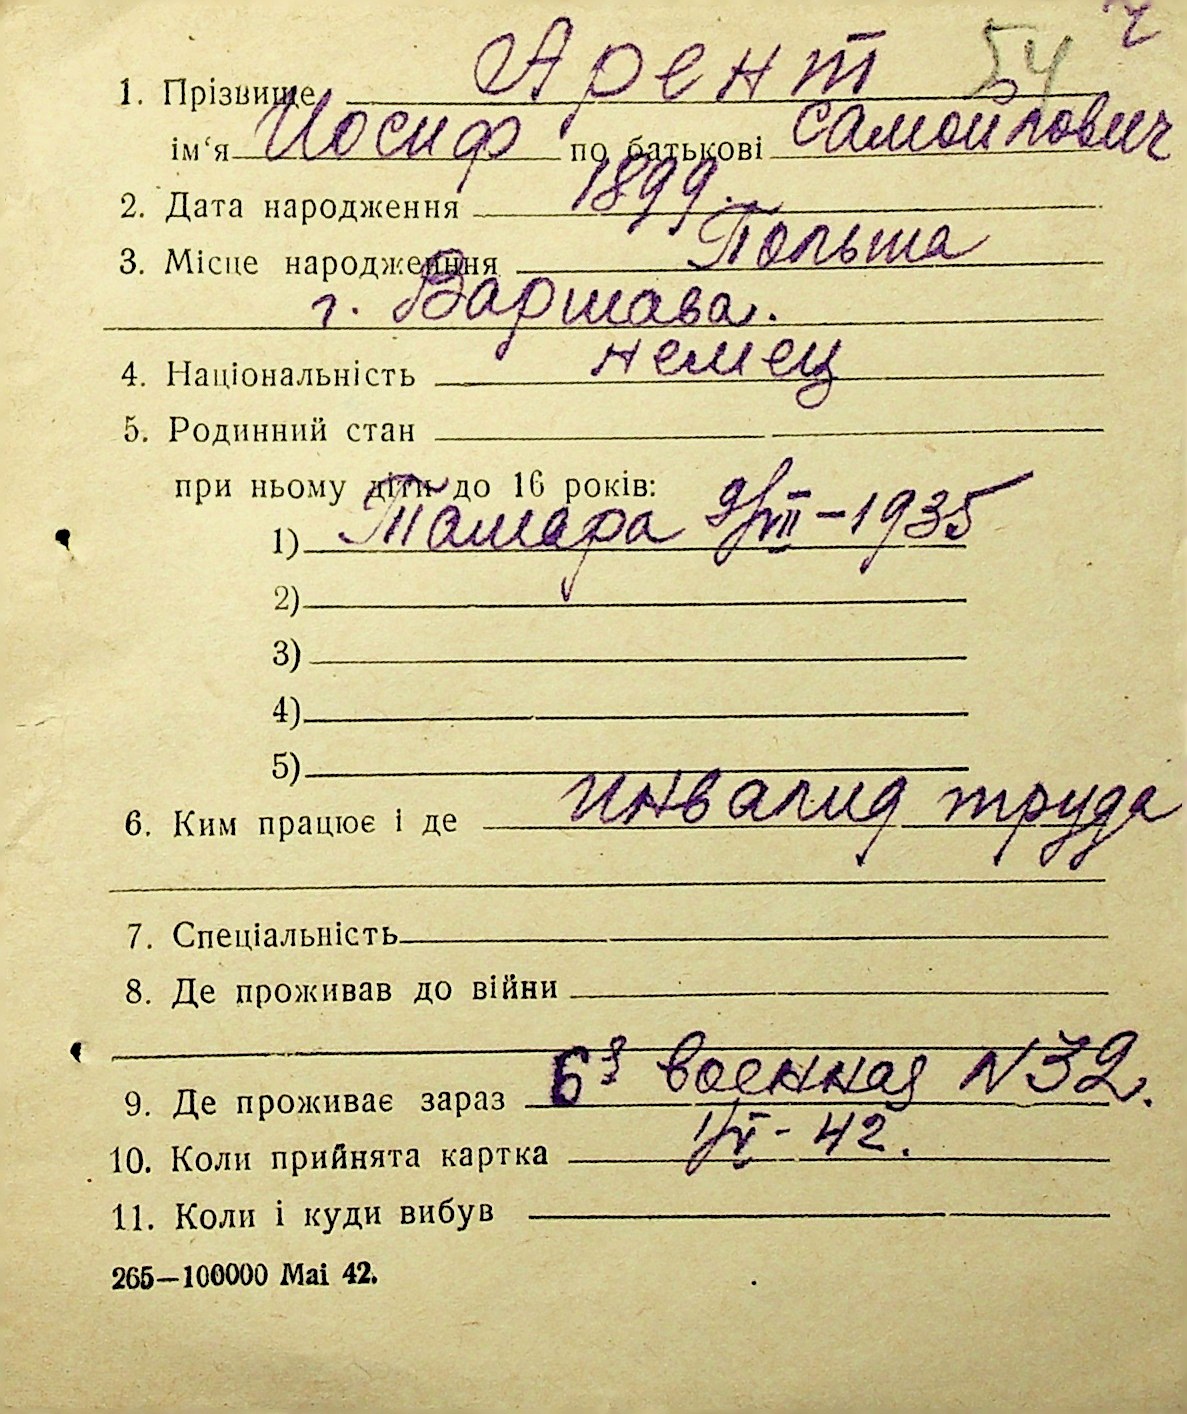 54 ч
1. Прізвище Арент
ім‘я Иосиф по батькові Самойлович
2. Дата народження 1899.
3. Місце народження Польша
г. Варшава.
4. Національність немец
5. Родинний стан
при ньому діти до 16 років:
1) Тамара 9/VIII-1935
2)
3)
4)
5)
6. Ким працює і де инвалид труда
7. Спеціальність
8. Де проживав до війни
9. Де проживає зараз 6я военная N32.
10. Коли прийнята картка 1/VI-42.
11. Коли і куди вибув
265—100000 Mai 42.